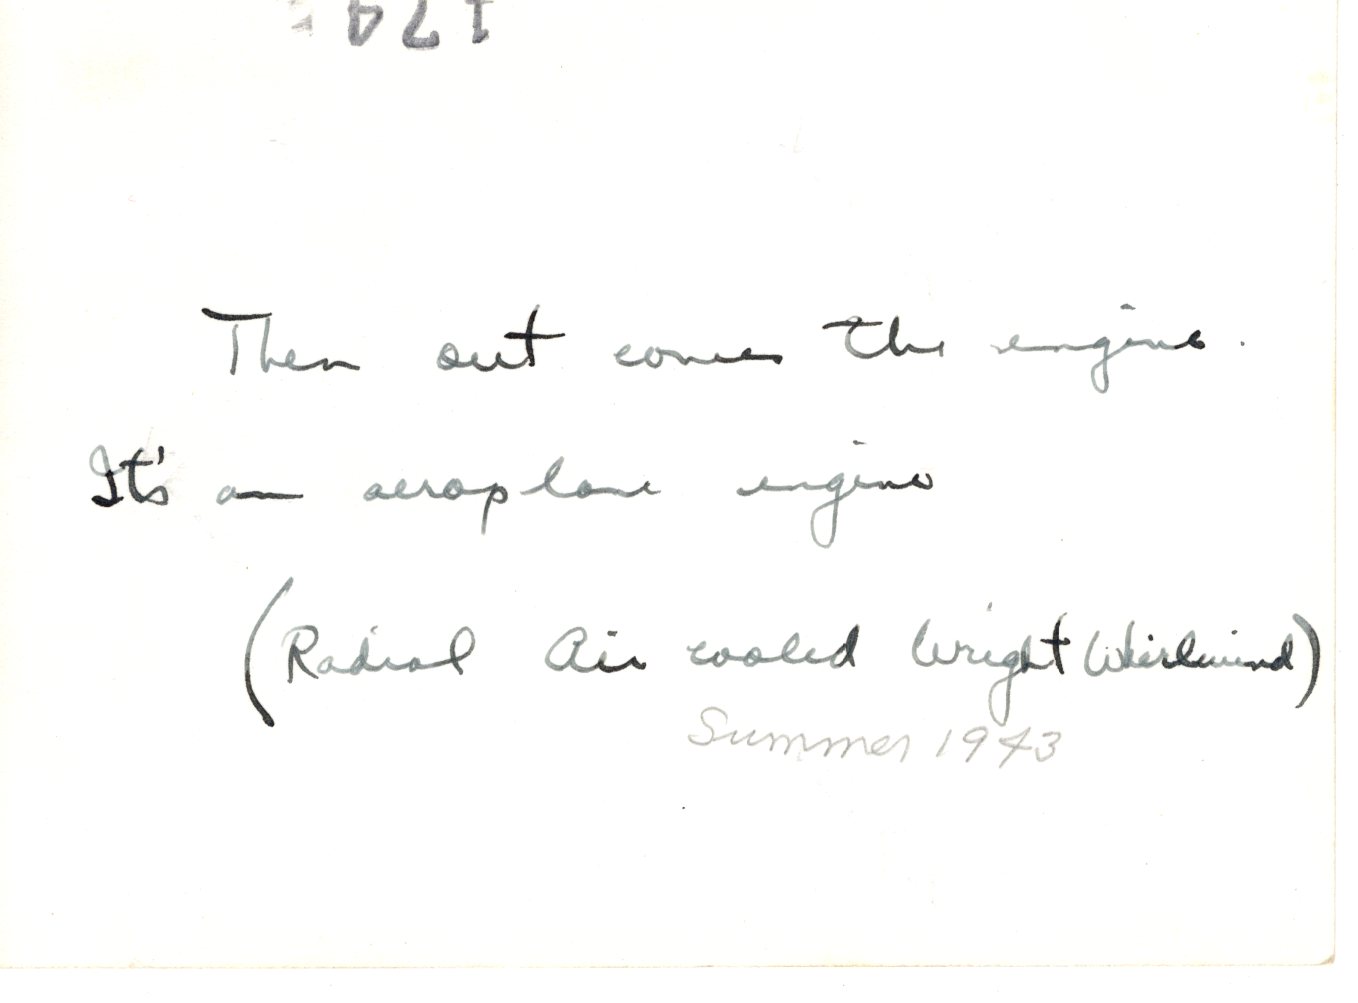 174
Then out comes the engine.
It's an aeroplane engine
(Radial Air cooled Wright Whirlwind)
Summer 1943